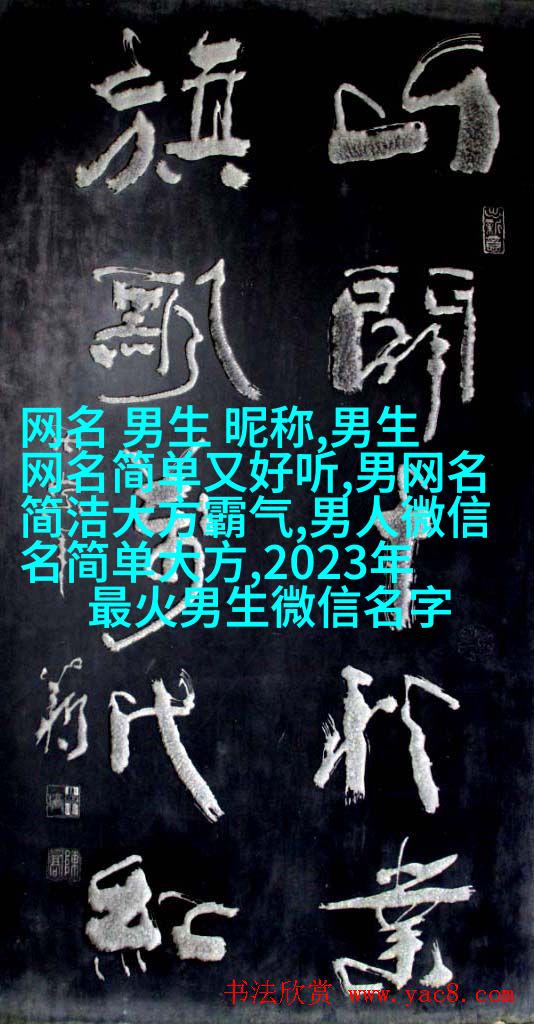 网名 男生 昵称,男生
网名简单又好听,男网名
简洁大方霸气,男人微信
名简单大方,2023年
最火男生微信名字
開千秋業
旗飄萬代紅
书法欣赏 www.yac8.com